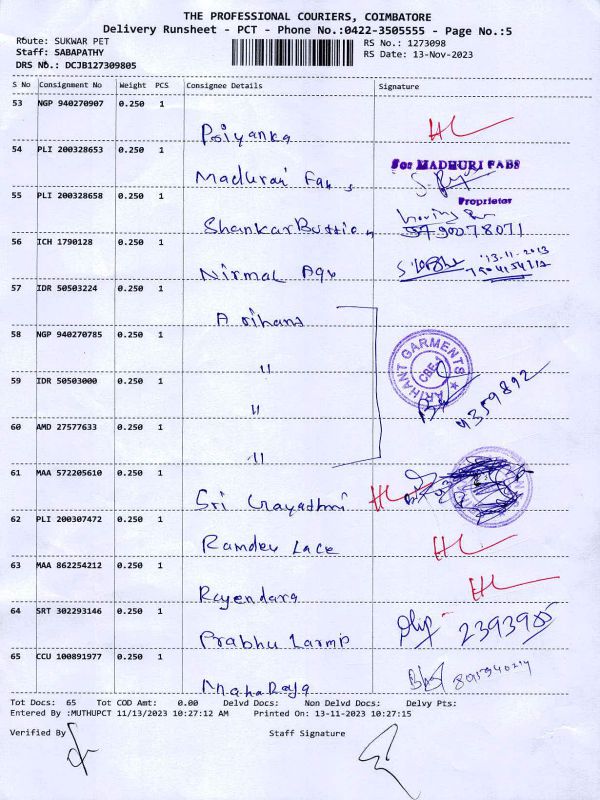 THE PROFESSIONAL COURIERS, COIMBATORE
Delivery Runsheet - PCT - Phone No.:0422-3505555 - Page No.:5
Route: SUKWAR PET RS No.: 1273098
Staff: SABAPATHY RS Date: 13-Nov-2023
DRS No.: DCJB127309805
S No Consignment No Weight PCS Consignee Details Signature
53 NGP 940270907 0.250 1
Priyanka HL
54 PLI 200328653 0.250 1 For MADHURI FABS
Madhurai Fabs
55 PLI 200328658 0.250 1 Proprietor
Shankar Button 90078071
56 ICH 1790128 0.250 1 13-11-2023
Nirmal Agv
57 IDR 50503224 0.250 1
Arihans
58 NGP 940270785 0.250 1 ARIHANT GARMENTS
" CBE-1
59 IDR 50503000 0.250 1
" 9359892
60 AMD 27577633 0.250 1
"
61 MAA 572205610 0.250 1
Sri Gayathri HL
62 PLI 200307472 0.250 1
Ramdev Lace HL
63 MAA 862254212 0.250 1
Rajendara HL
64 SRT 302293146 0.250 1
Prabhu Larmp 2393985
65 CCU 100891977 0.250 1
MahaRaja
Tot Docs: 65 Tot COD Amt: 0.00 Delvd Docs: Non Delvd Docs: Delvy Pts:
Entered By :MUTHUPCT 11/13/2023 10:27:12 AM Printed On: 13-11-2023 10:27:15
Verified By Staff Signature